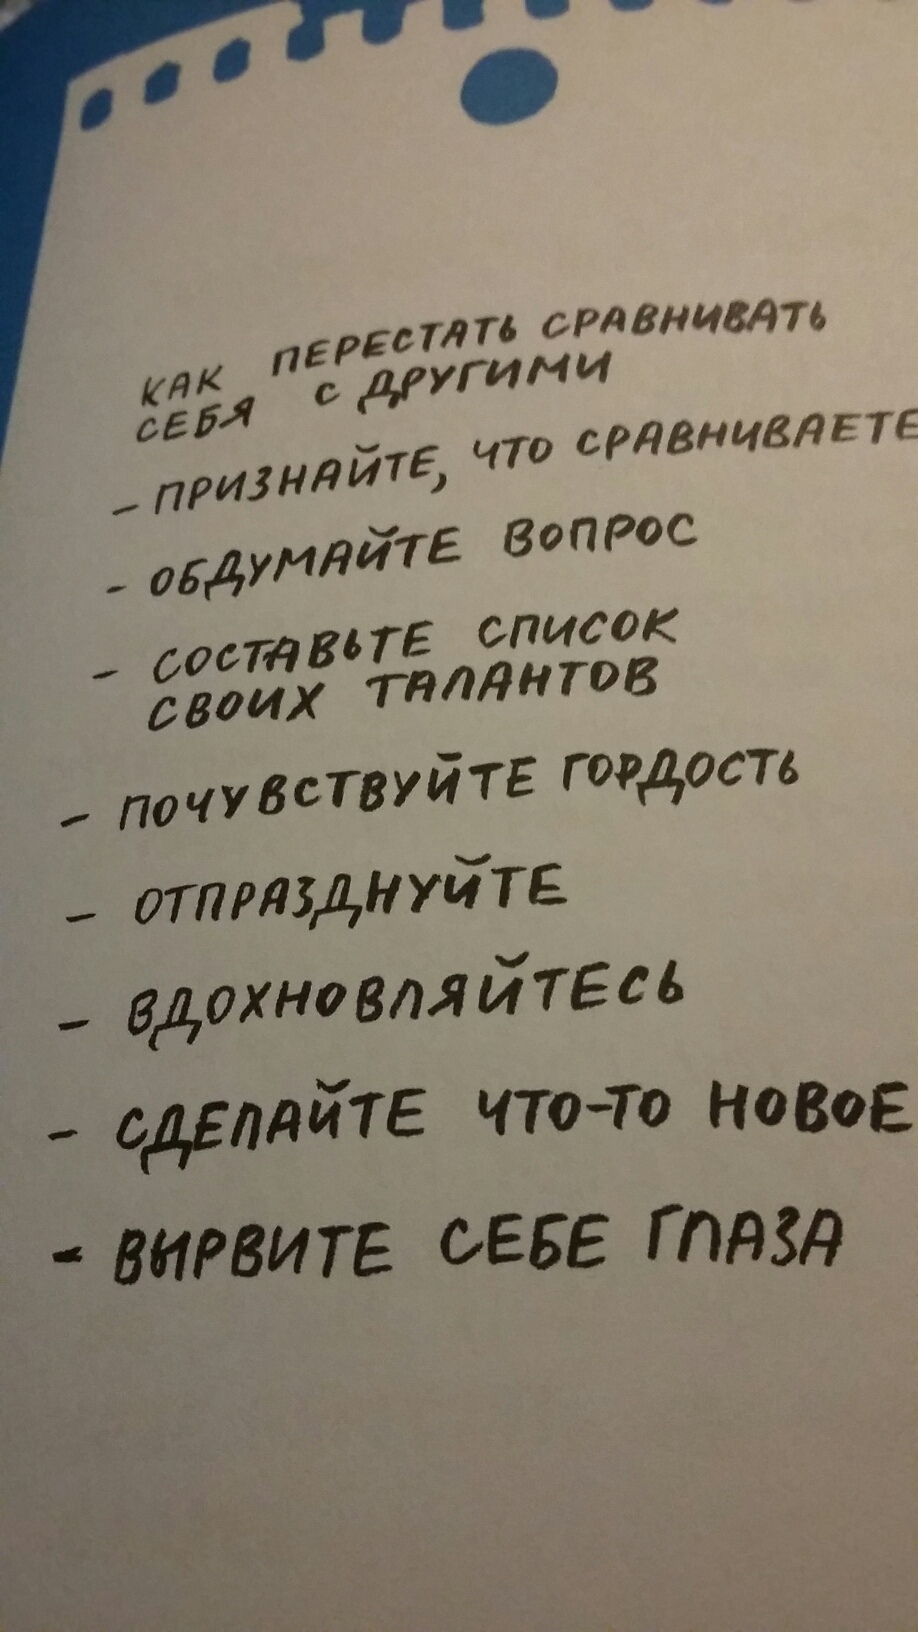 КАК ПЕРЕСТАТЬ СРАВНИВАТЬ
СЕБЯ С ДРУГИМИ
- ПРИЗНАЙТЕ, ЧТО СРАВНИВАЕТЕ
- ОБДУМАЙТЕ ВОПРОС
- СОСТАВЬТЕ СПИСОК
СВОИХ ТАЛАНТОВ
- ПОЧУВСТВУЙТЕ ГОРДОСТЬ
- ОТПРАЗДНУЙТЕ
- ВДОХНОВЛЯЙТЕСЬ
- СДЕЛАЙТЕ ЧТО-ТО НОВОЕ
- ВЫРВИТЕ СЕБЕ ГЛАЗА